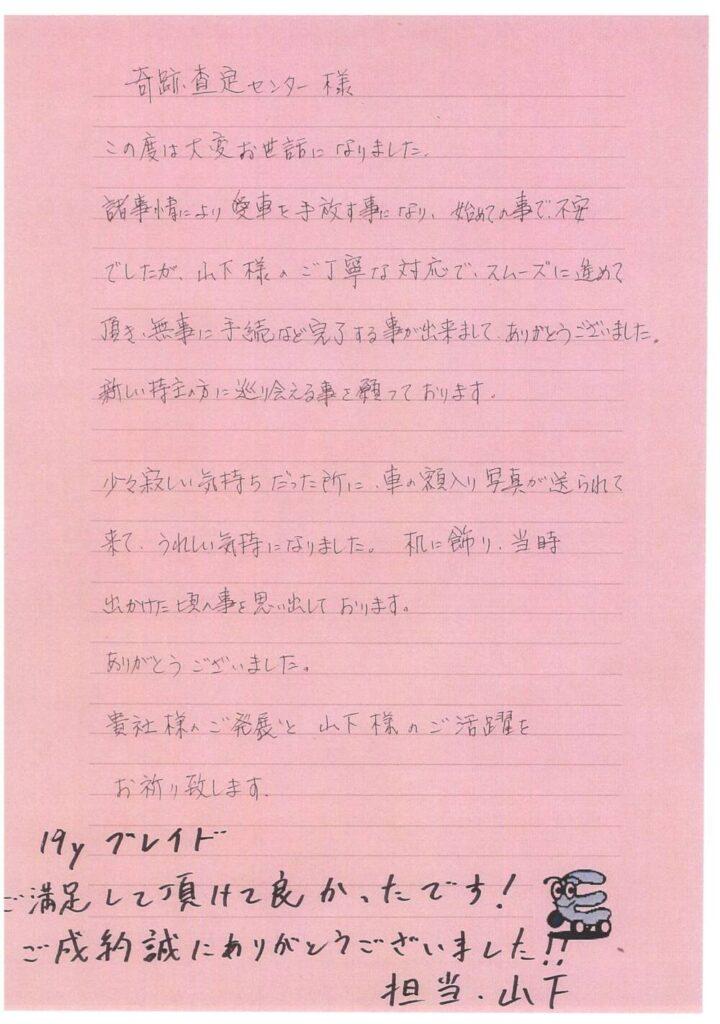 奇跡査定センター様
この度は大変お世話になりました。
諸事情により愛車を手放す事になり、始めての事で、不安
でしたが、山下様のご丁寧な対応で、スムーズに進めて
頂き、無事に手続など完了する事が出来まして、ありがとうございました。
新しい持主の方に巡り会える事を願っております。
少々寂しい気持ちだった所に、車の額入り写真が送られて
来て、うれしい気持になりました。 机に飾り、当時
出かけた頃の事を思い出しております。
ありがとうございました。
貴社様のご発展と 山下様のご活躍を
お祈り致します。
19y ブレイド
ご満足して頂けて良かったです!
ご成約誠にありがとうございました!!
担当・山下